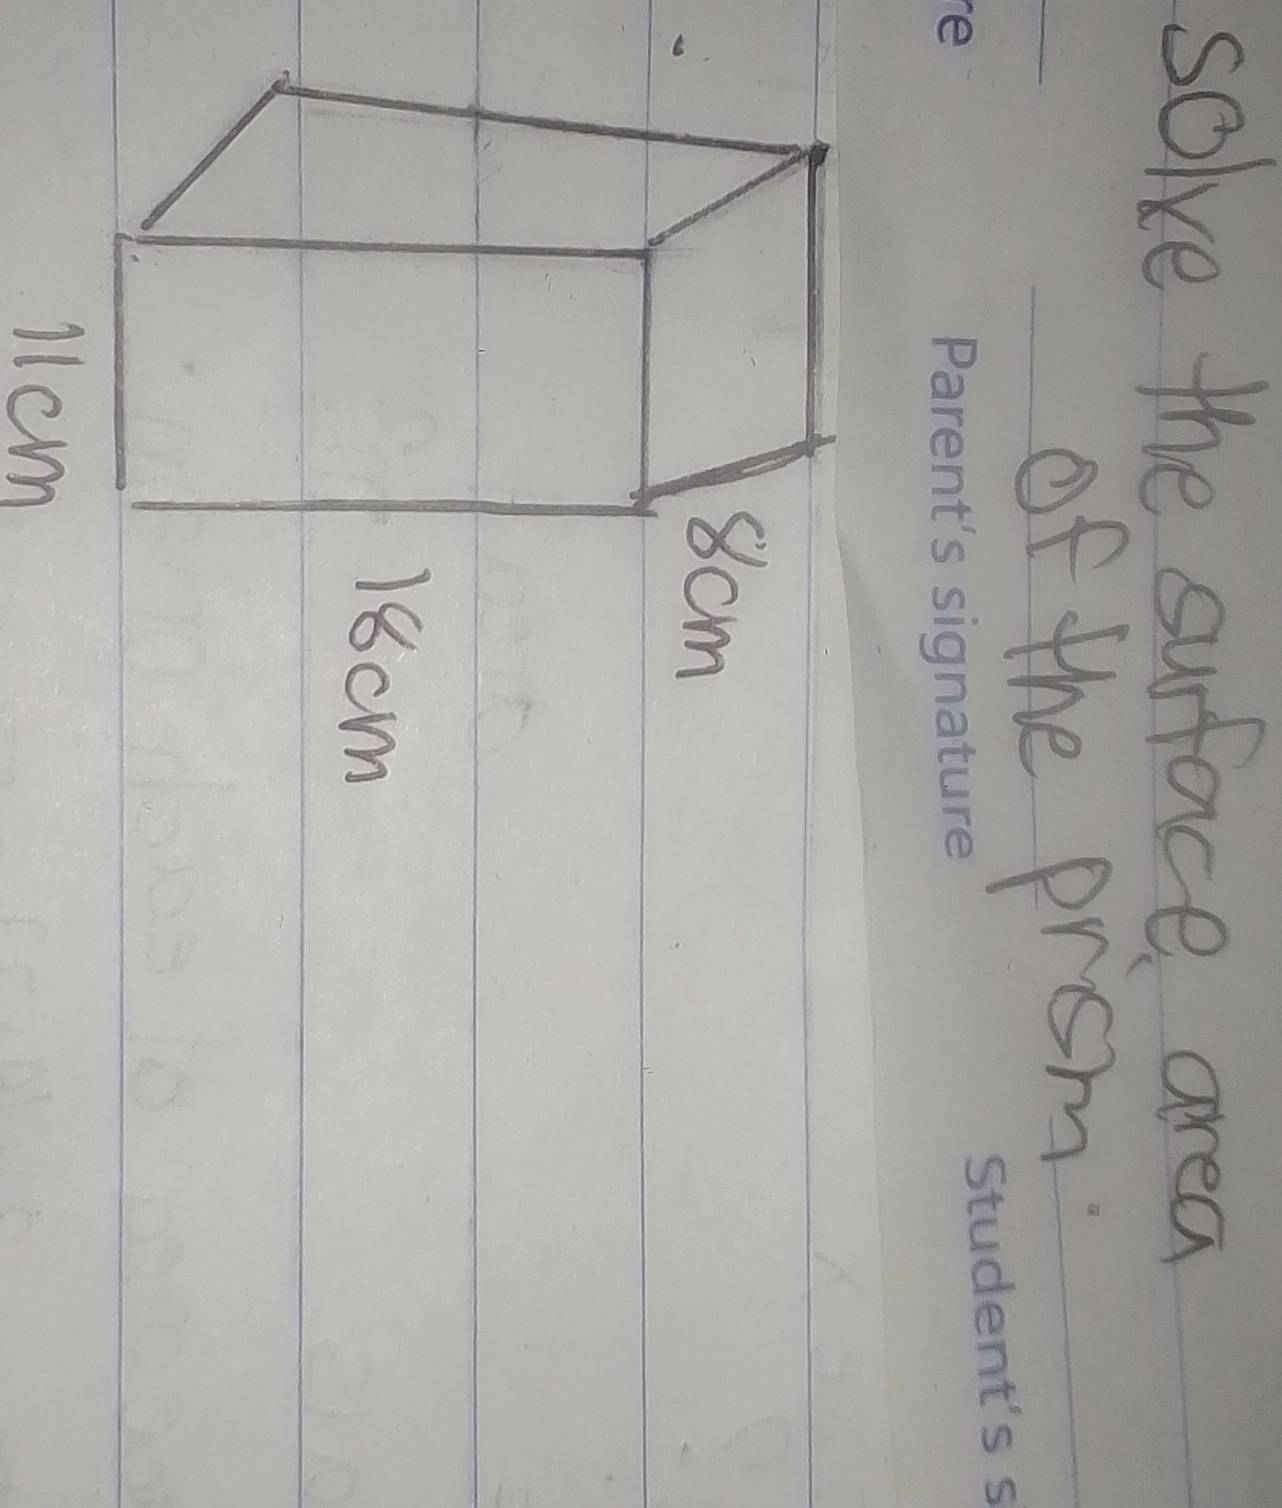 solve the surface area
of the prism.
re Parent's signature Student's s
8cm
18cm
11cm